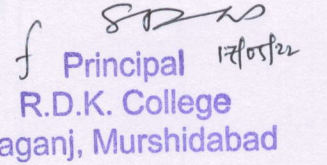 Principal 17/05/22
R.D.K. College
aganj, Murshidabad